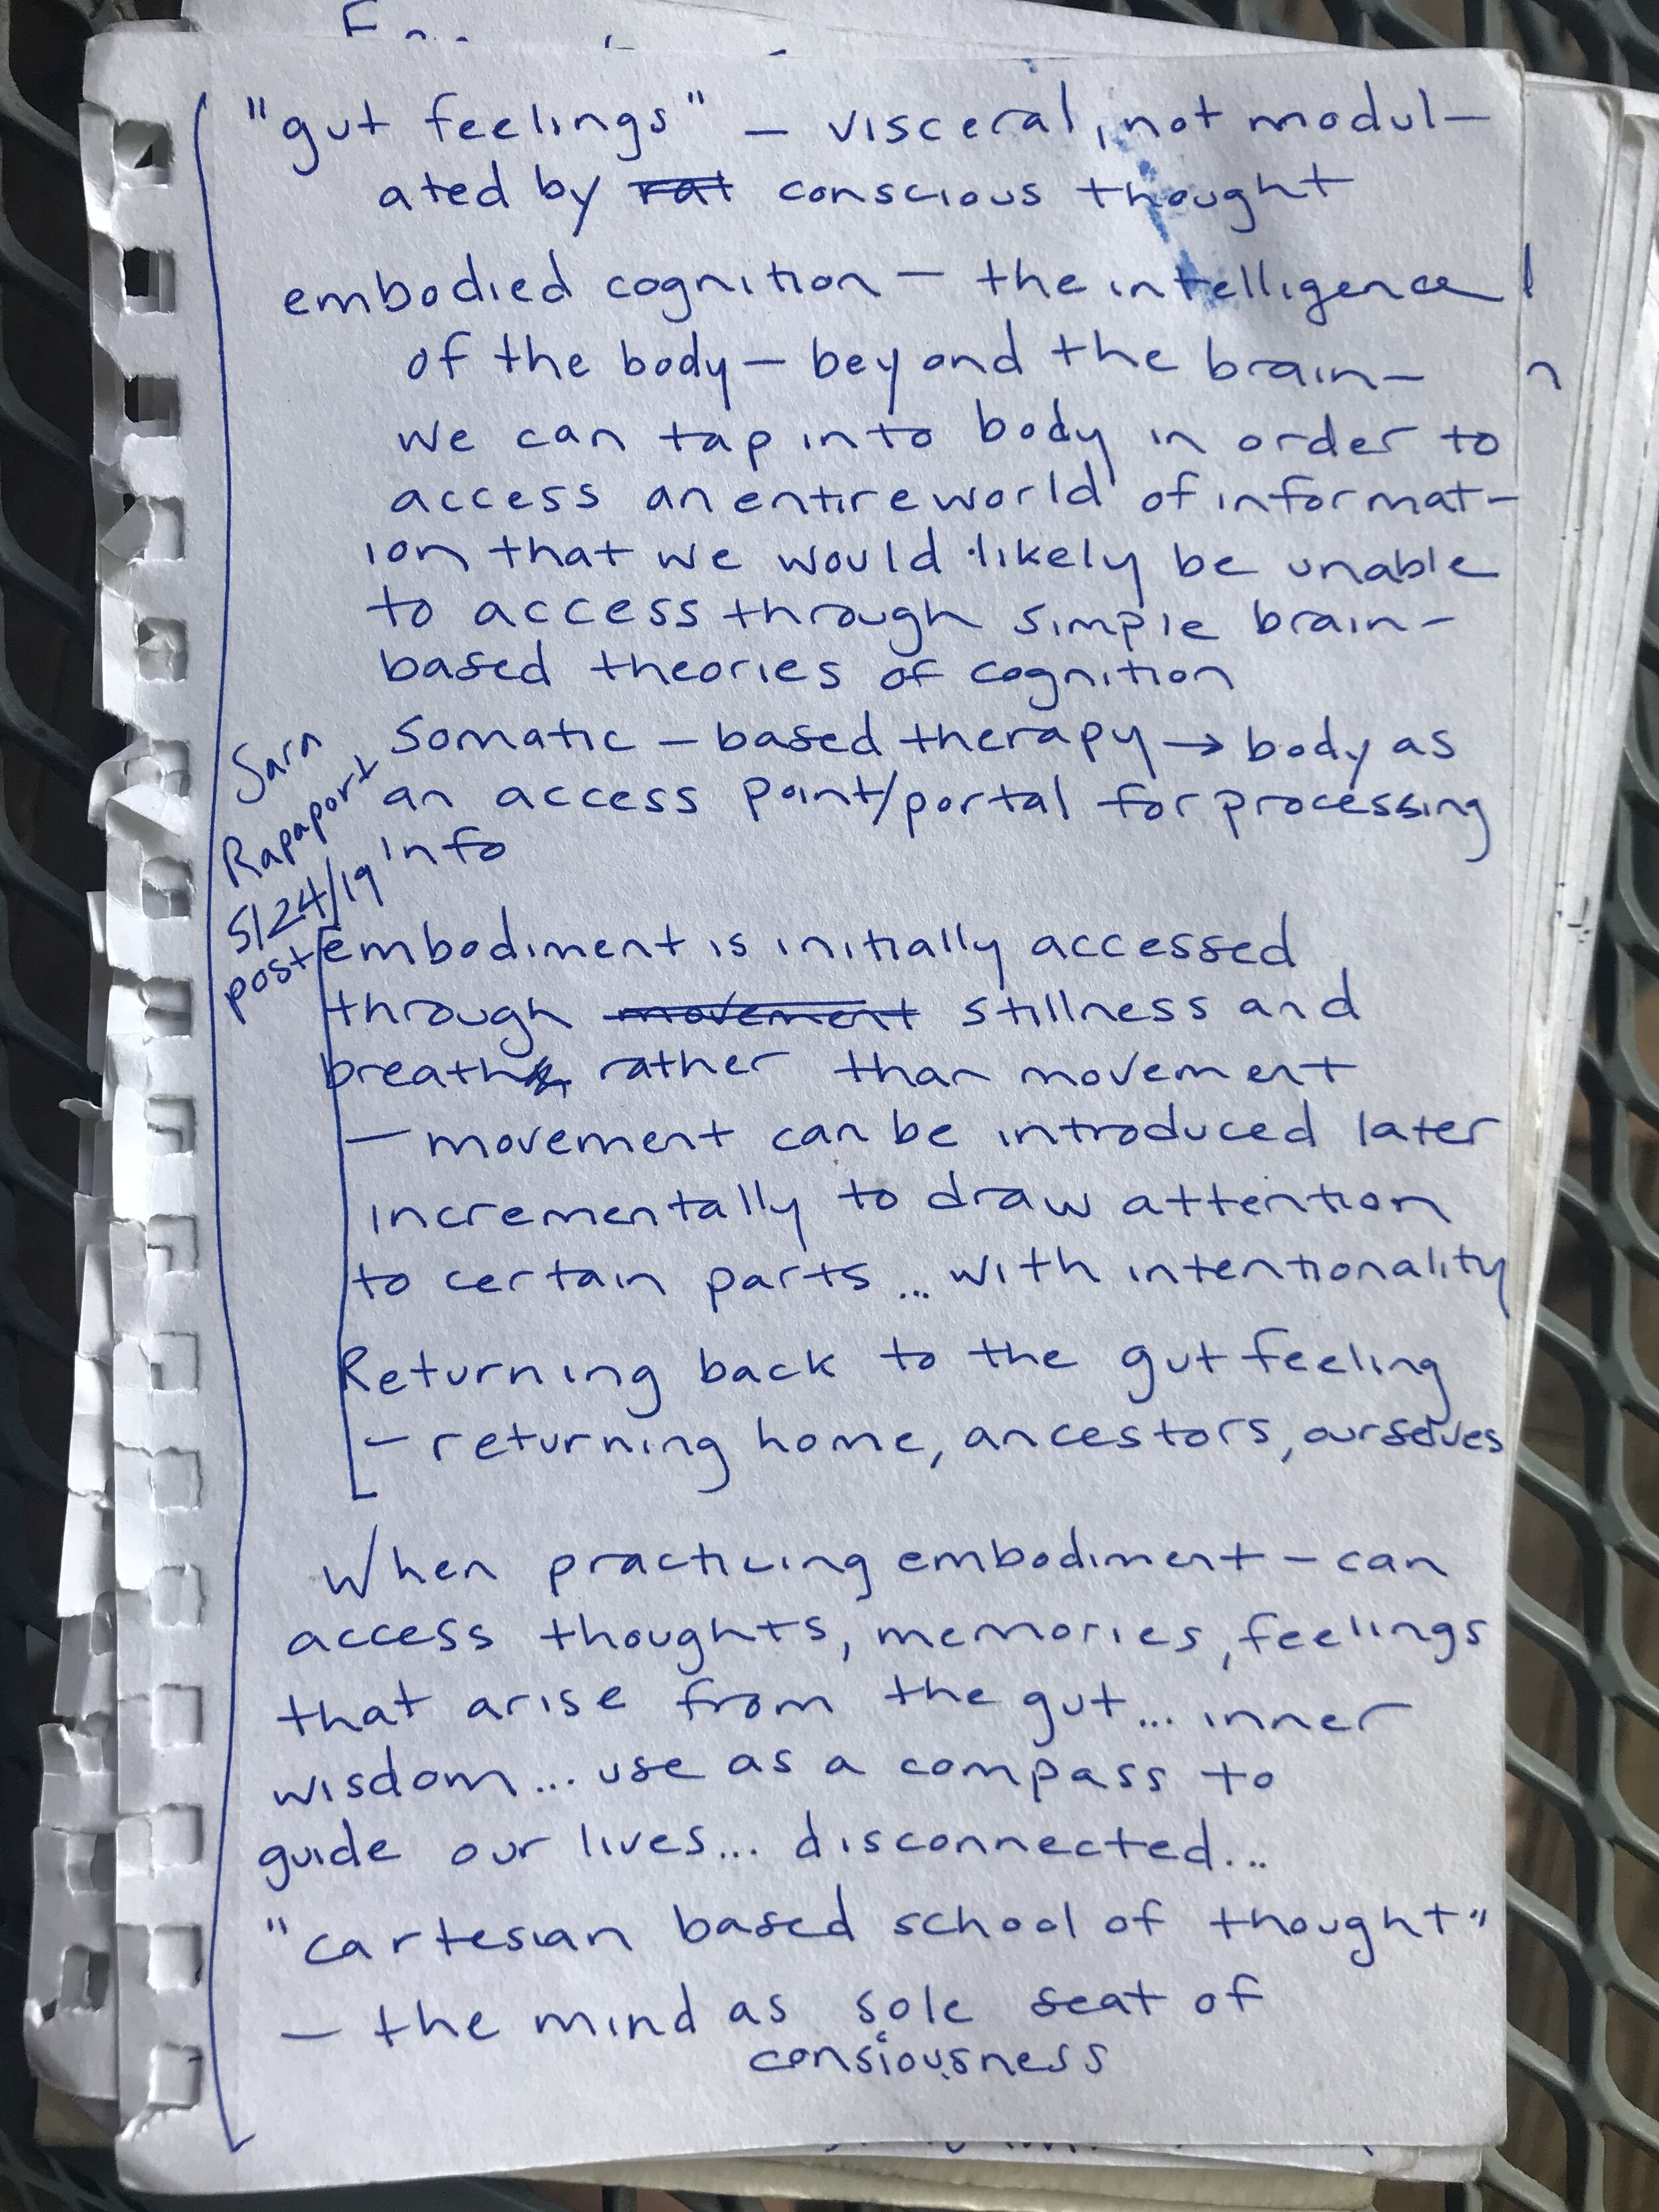 "gut feelings" — visceral, not modul-
ated by rat conscious thought
embodied cognition — the intelligence
of the body — beyond the brain —
we can tap into body in order to
access an entire world of informat-
ion that we would likely be unable
to access through simple brain-
based theories of cognition
Somatic - based therapy → body as
an access point/portal for processing
info
Sara
Rapaport
5/24/19
post
embodiment is initially accessed
through movement stillness and
breath rather than movement
— movement can be introduced later
incrementally to draw attention
to certain parts... with intentionality
Returning back to the gut feeling
— returning home, ancestors, ourselves
When practicing embodiment — can
access thoughts, memories, feelings
that arise from the gut... inner
wisdom... use as a compass to
guide our lives... disconnected...
"cartesian based school of thought"
— the mind as sole seat of
consciousness